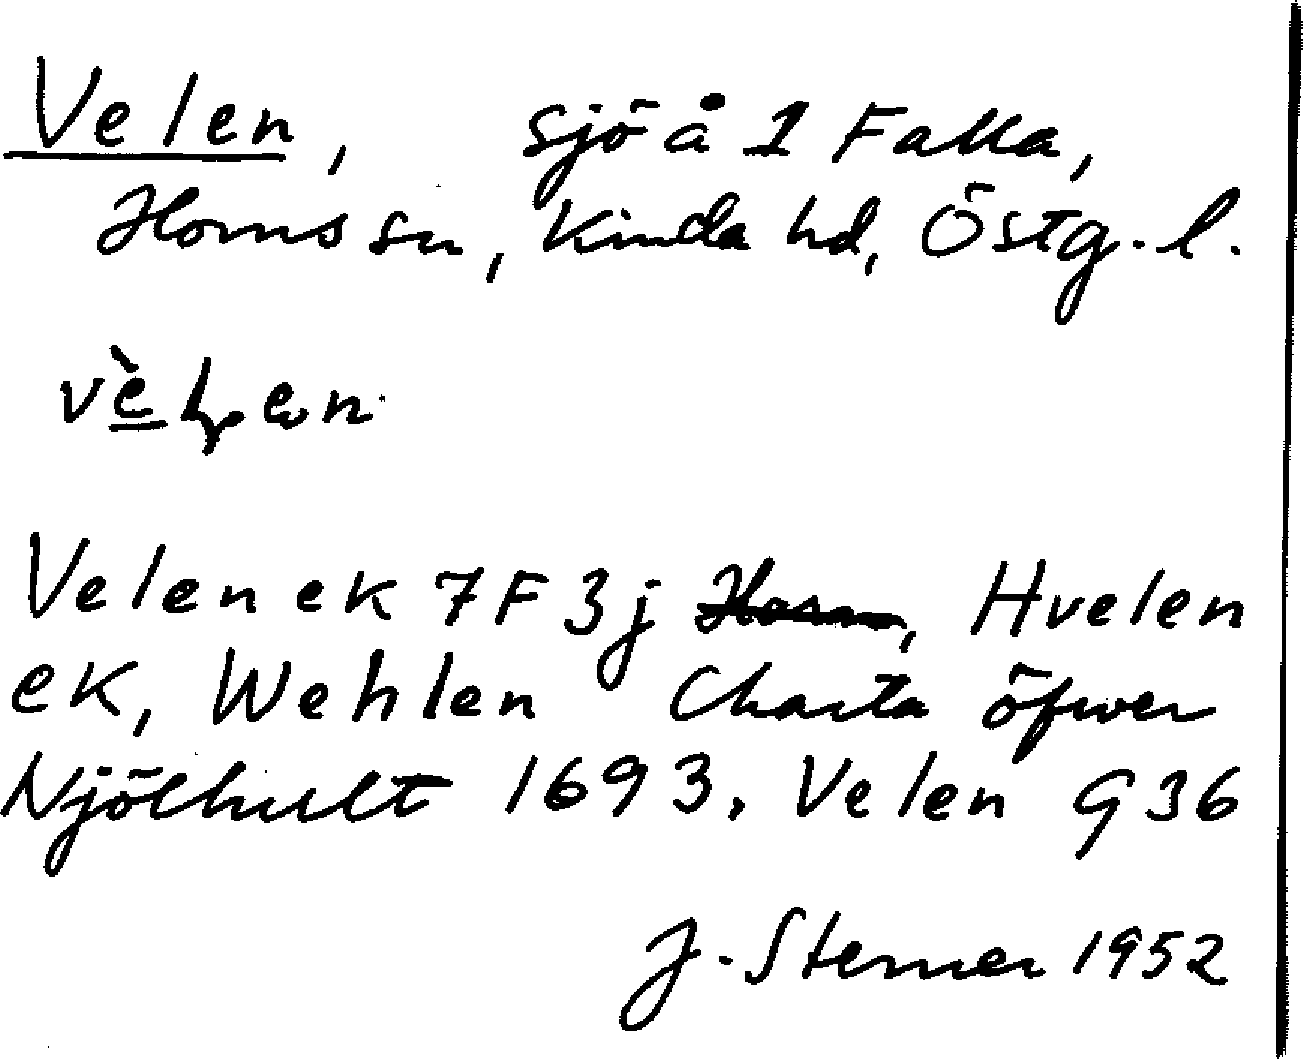 Velen, sjö å 1 Falla,
Horns sn, Kinda hd, Östg. l.
Velen ek 7F3j, Hvelen
ek, Wehlen Charta öfwer
Njölhult 1693. Velen G36
J. Sterner 1952